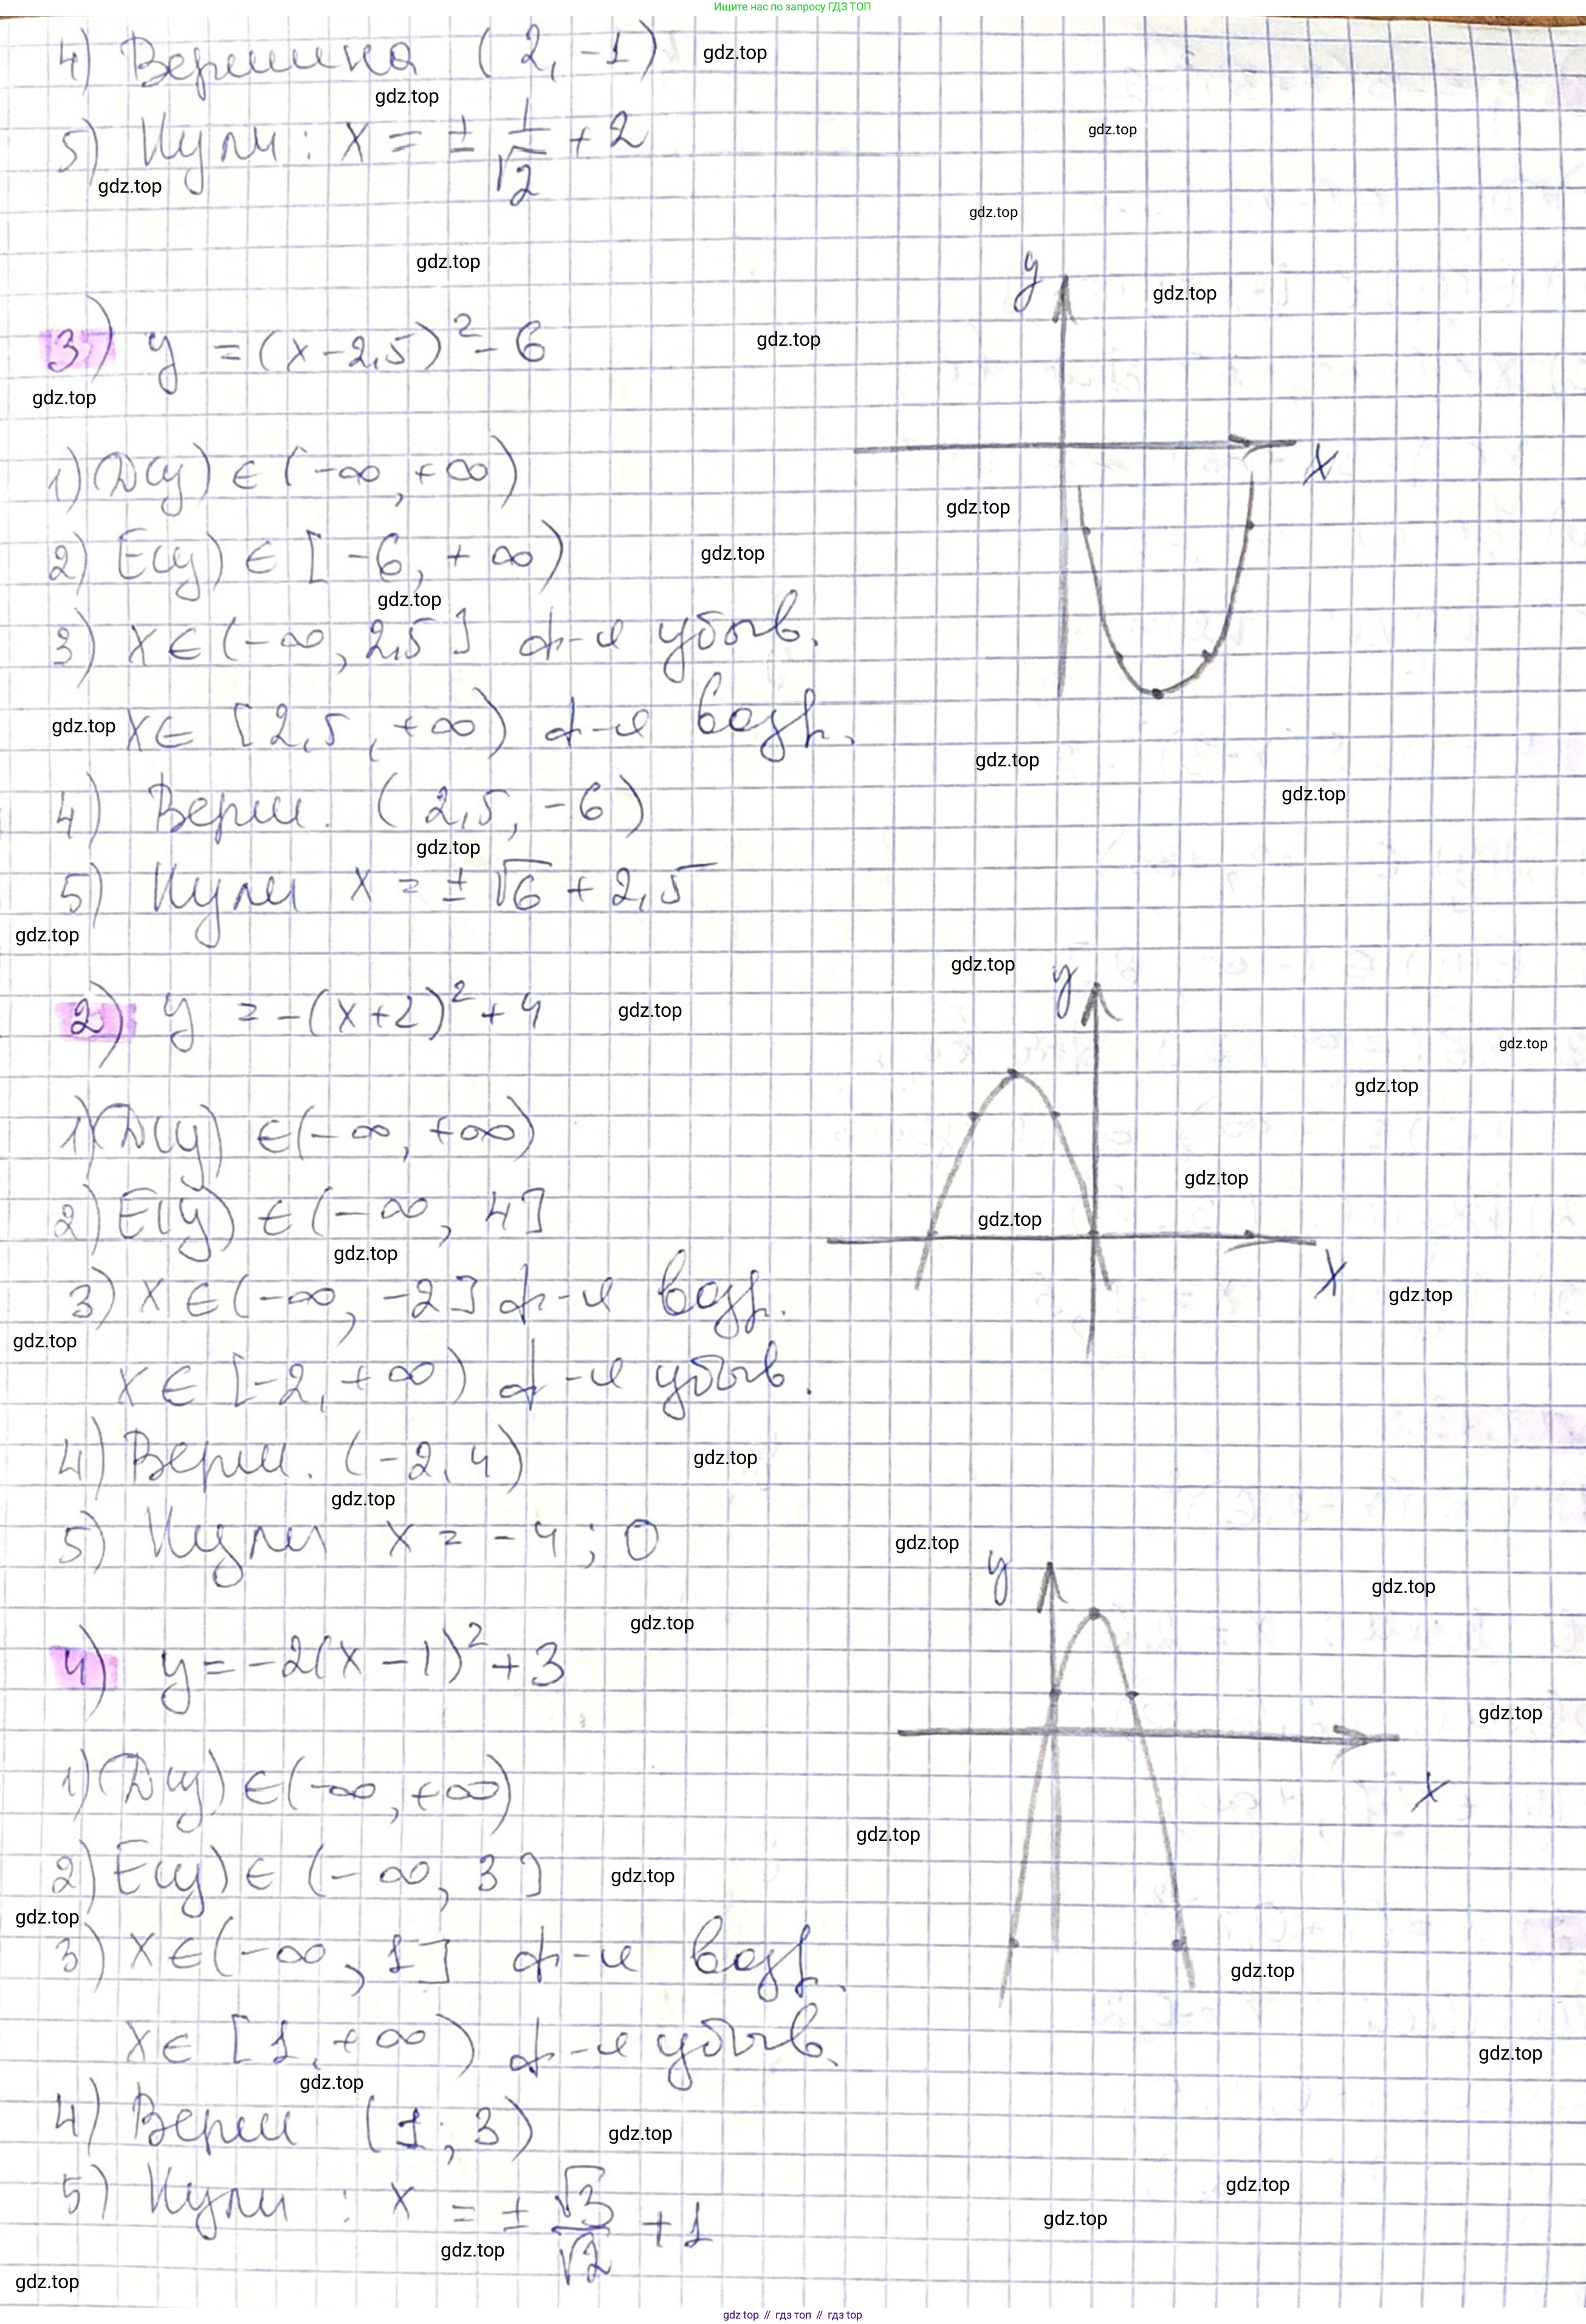 Ищите нас по запросу ГДЗ ТОП
4) Вершина (2, -1)
5) Нули: x = ± 1/√2 + 2
3) y = (x-2,5)² - 6
1) D(y) ∈ (-∞, +∞)
2) E(y) ∈ [-6, +∞)
3) x ∈ (-∞, 2,5] ф-я убыв.
x ∈ [2,5, +∞) ф-я возр.
4) Верш. (2,5, -6)
5) Нули x = ± √6 + 2,5
y
x
2) y = -(x+2)² + 4
1) D(y) ∈ (-∞, +∞)
2) E(y) ∈ (-∞, 4]
3) x ∈ (-∞, -2] ф-я возр.
x ∈ [-2, +∞) ф-я убыв.
4) Верш. (-2, 4)
5) Нули x = -4; 0
y
x
4) y = -2(x-1)² + 3
1) D(y) ∈ (-∞, +∞)
2) E(y) ∈ (-∞, 3]
3) x ∈ (-∞, 1] ф-я возр.
x ∈ [1, +∞) ф-я убыв.
4) Верш (1; 3)
5) Нули: x = ± √3/√2 + 1
y
x
gdz.top
gdz top // гдз топ // gdz top